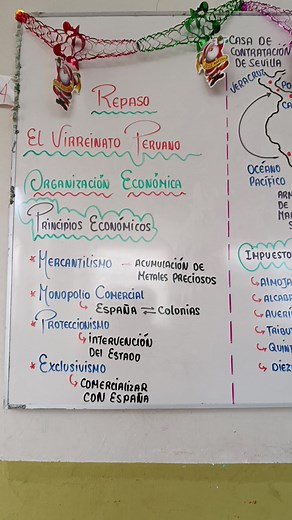 REPASO
EL VIRREINATO PERUANO
ORGANIZACIÓN ECONÓMICA
PRINCIPIOS ECONÓMICOS
* MERCANTILISMO — ACUMULACIÓN DE
METALES PRECIOSOS
* MONOPOLIO COMERCIAL
↳ ESPAÑA ⇌ COLONIAS
* PROTECCIONISMO
↳ INTERVENCIÓN
DEL ESTADO
* EXCLUSIVISMO
↳ COMERCIALIZAR
CON ESPAÑA
CASA DE
CONTRATACIÓN
DE SEVILLA
VERACRUZ
OCÉANO
PACÍFICO
DE
IMPUESTO
↳ ALMOJA
↳ ALCABA
↳ AVERÍ
↳ TRIBU
↳ QUINT
↳ DIEZ